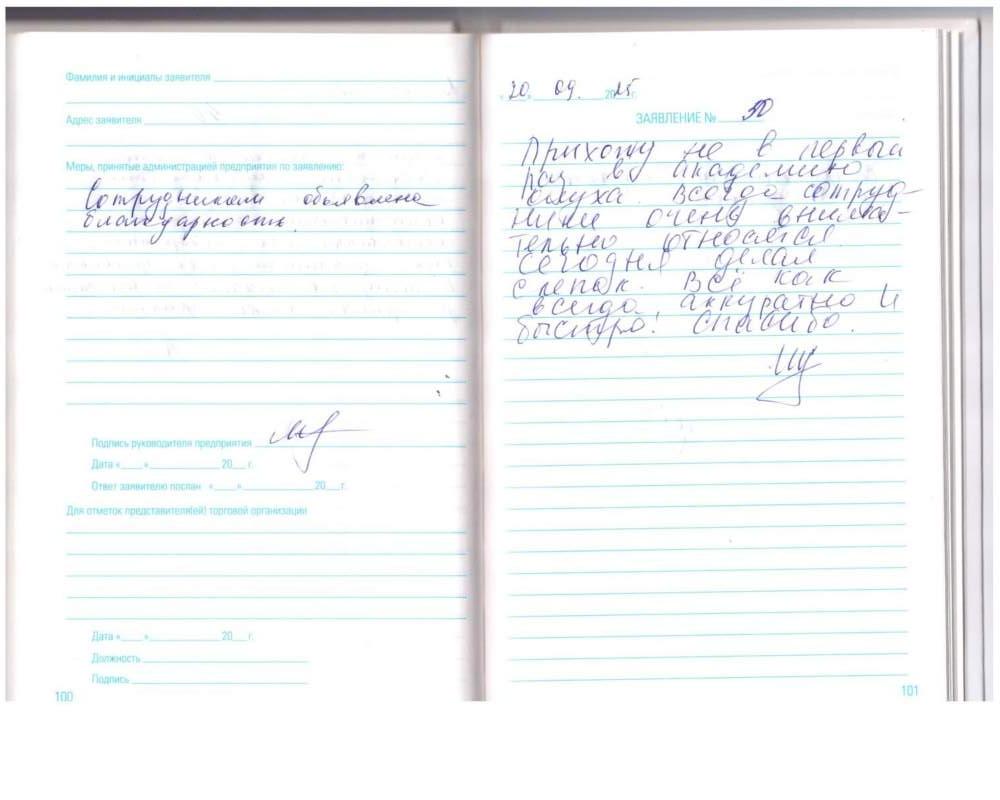 Фамилия и инициалы заявителя
Адрес заявителя
Меры, принятые администрацией предприятия по заявлению:
Сотрудникам объявлена
благодарность.
Подпись руководителя предприятия
Дата «___»__________ 20___ г.
Ответ заявителю послан «___»__________ 20___ г.
Для отметок представителя(ей) торговой организации
Дата «___»__________ 20___ г.
Должность
Подпись
100
20. 09. 2025г.
ЗАЯВЛЕНИЕ № 50
Прихожу не в первый
раз в академию
слуха. Всегда сотруд-
ники очень внима-
тельно относятся.
Сегодня делал
слепок. Всё как
всегда, аккуратно и
быстро! Спасибо.
101